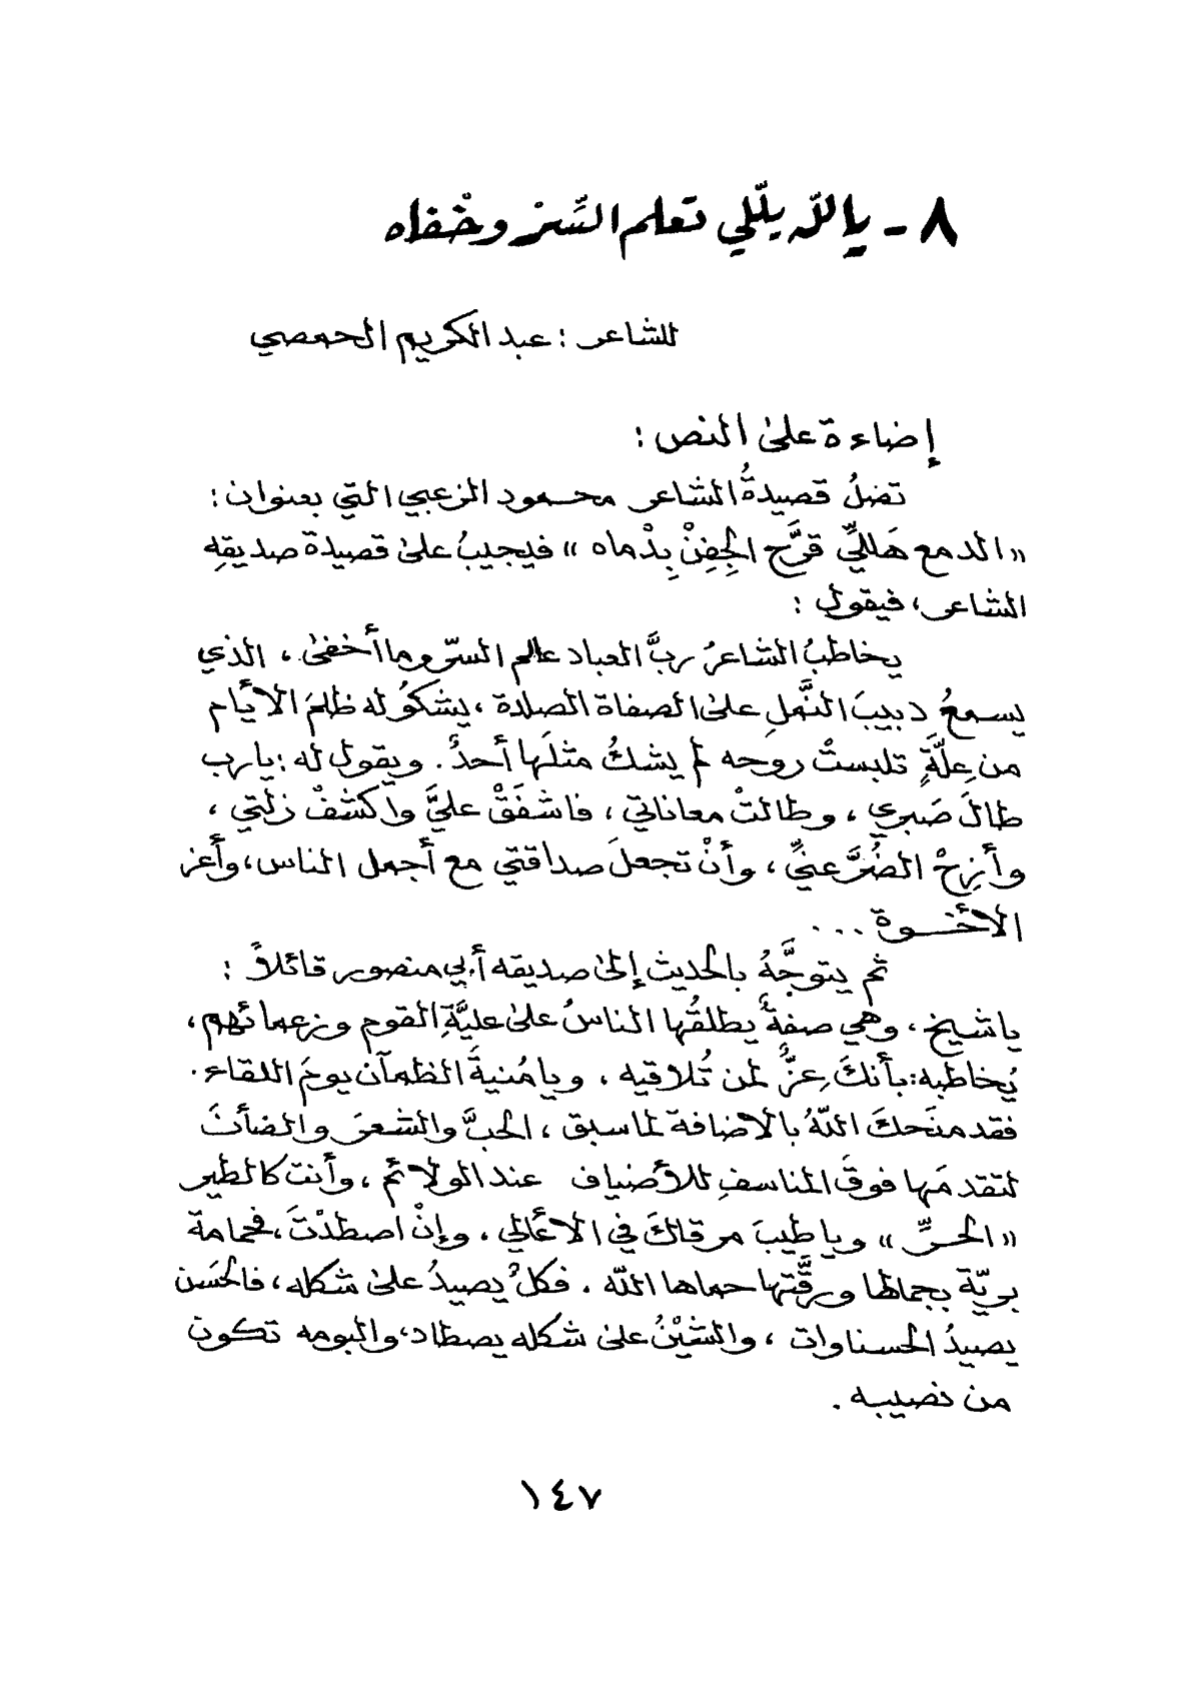 ٨ - يالله يلّلي تعلم السِّرْ وخْفاه
للشاعر : عبد الكريم الحمصي
إضاءة على النص :
تصلُ قصيدةُ الشاعر محمود الزعبي التي بعنوان :
« الدمع هَللِّي قرَّح الجِفِنْ بِدْماه » فيجيبُ على قصيدة صديقهِ
الشاعر، فيقول :
يخاطبُ الشاعرُ ربَّ العباد عالم السرّ وما أخفى ، الذي
يسمعُ دبيبَ النَّملِ على الصفاة الصلدة ، يشكوُ له ظلمَ الأيام
من عِلَّةٍ تلبستْ روحه لم يشكُ مثلَها أحدٌ . ويقول له : يارب
طالَ صَبري ، وطالتْ معاناتي ، فاشفَقْ عليَّ واكشفْ زلتي ،
وأنزِحْ الضُرَّ عنيِّ ، وأنْ تجعلَ صداقتي مع أجمل الناس ، وأعز
الأخوة ...
ثم يتوجَّهُ بالحديث إلى صديقه أبي منصور قائلاً :
ياشيخ ، وهي صفةٌ يطلقُها الناسُ على عليَّةِ القوم وزعمائهم ،
يُخاطبه : بأنكَ عِزٌّ لمن تُلاقيه ، ويامُنيةَ الظمآن يومَ اللقاء .
فقد منَحكَ اللهُ بالاضافة لما سبق ، الحبَّ والشعرَ والضأنَ
لتقدمَها فوقَ المناسفِ للأضياف عند الولائم ، وأنت كالطير
« الحرِّ » وياطيبَ مرقاكَ في الأعالي ، وإنْ اصطدْتَ ، فحمامة
بريّة بجمالها ورقَّتها حماها الله . فكلٌ يصيدُ على شكله ، فالحَسَن
يصيدُ الحسناوات ، والشيْنُ على شكله يصطاد ، والبومه تكون
من نصيبه .
١٤٧